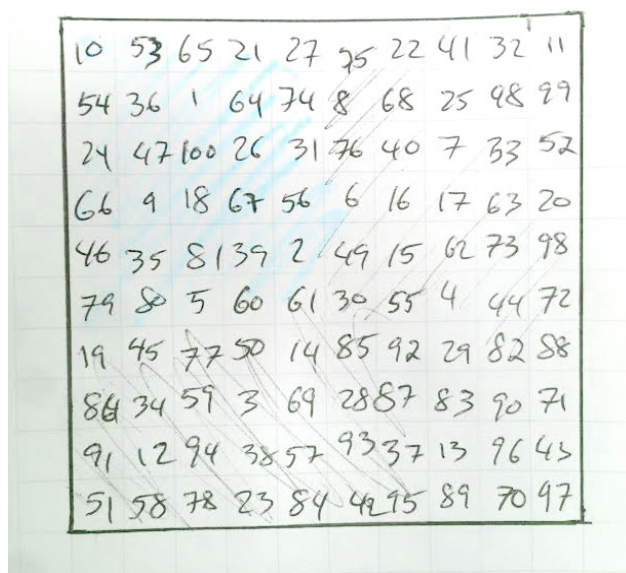 10 53 65 21 27 75 22 41 32 11
54 36 1 64 74 8 68 25 48 99
24 47 100 26 31 76 40 7 33 52
66 9 18 67 56 6 16 17 63 20
46 35 81 39 2 49 15 62 73 98
79 80 5 60 61 30 55 4 44 72
19 45 77 50 14 85 92 29 82 88
86 34 59 3 69 28 87 83 90 71
91 12 94 38 57 93 37 13 96 43
51 58 78 23 84 42 95 89 70 97